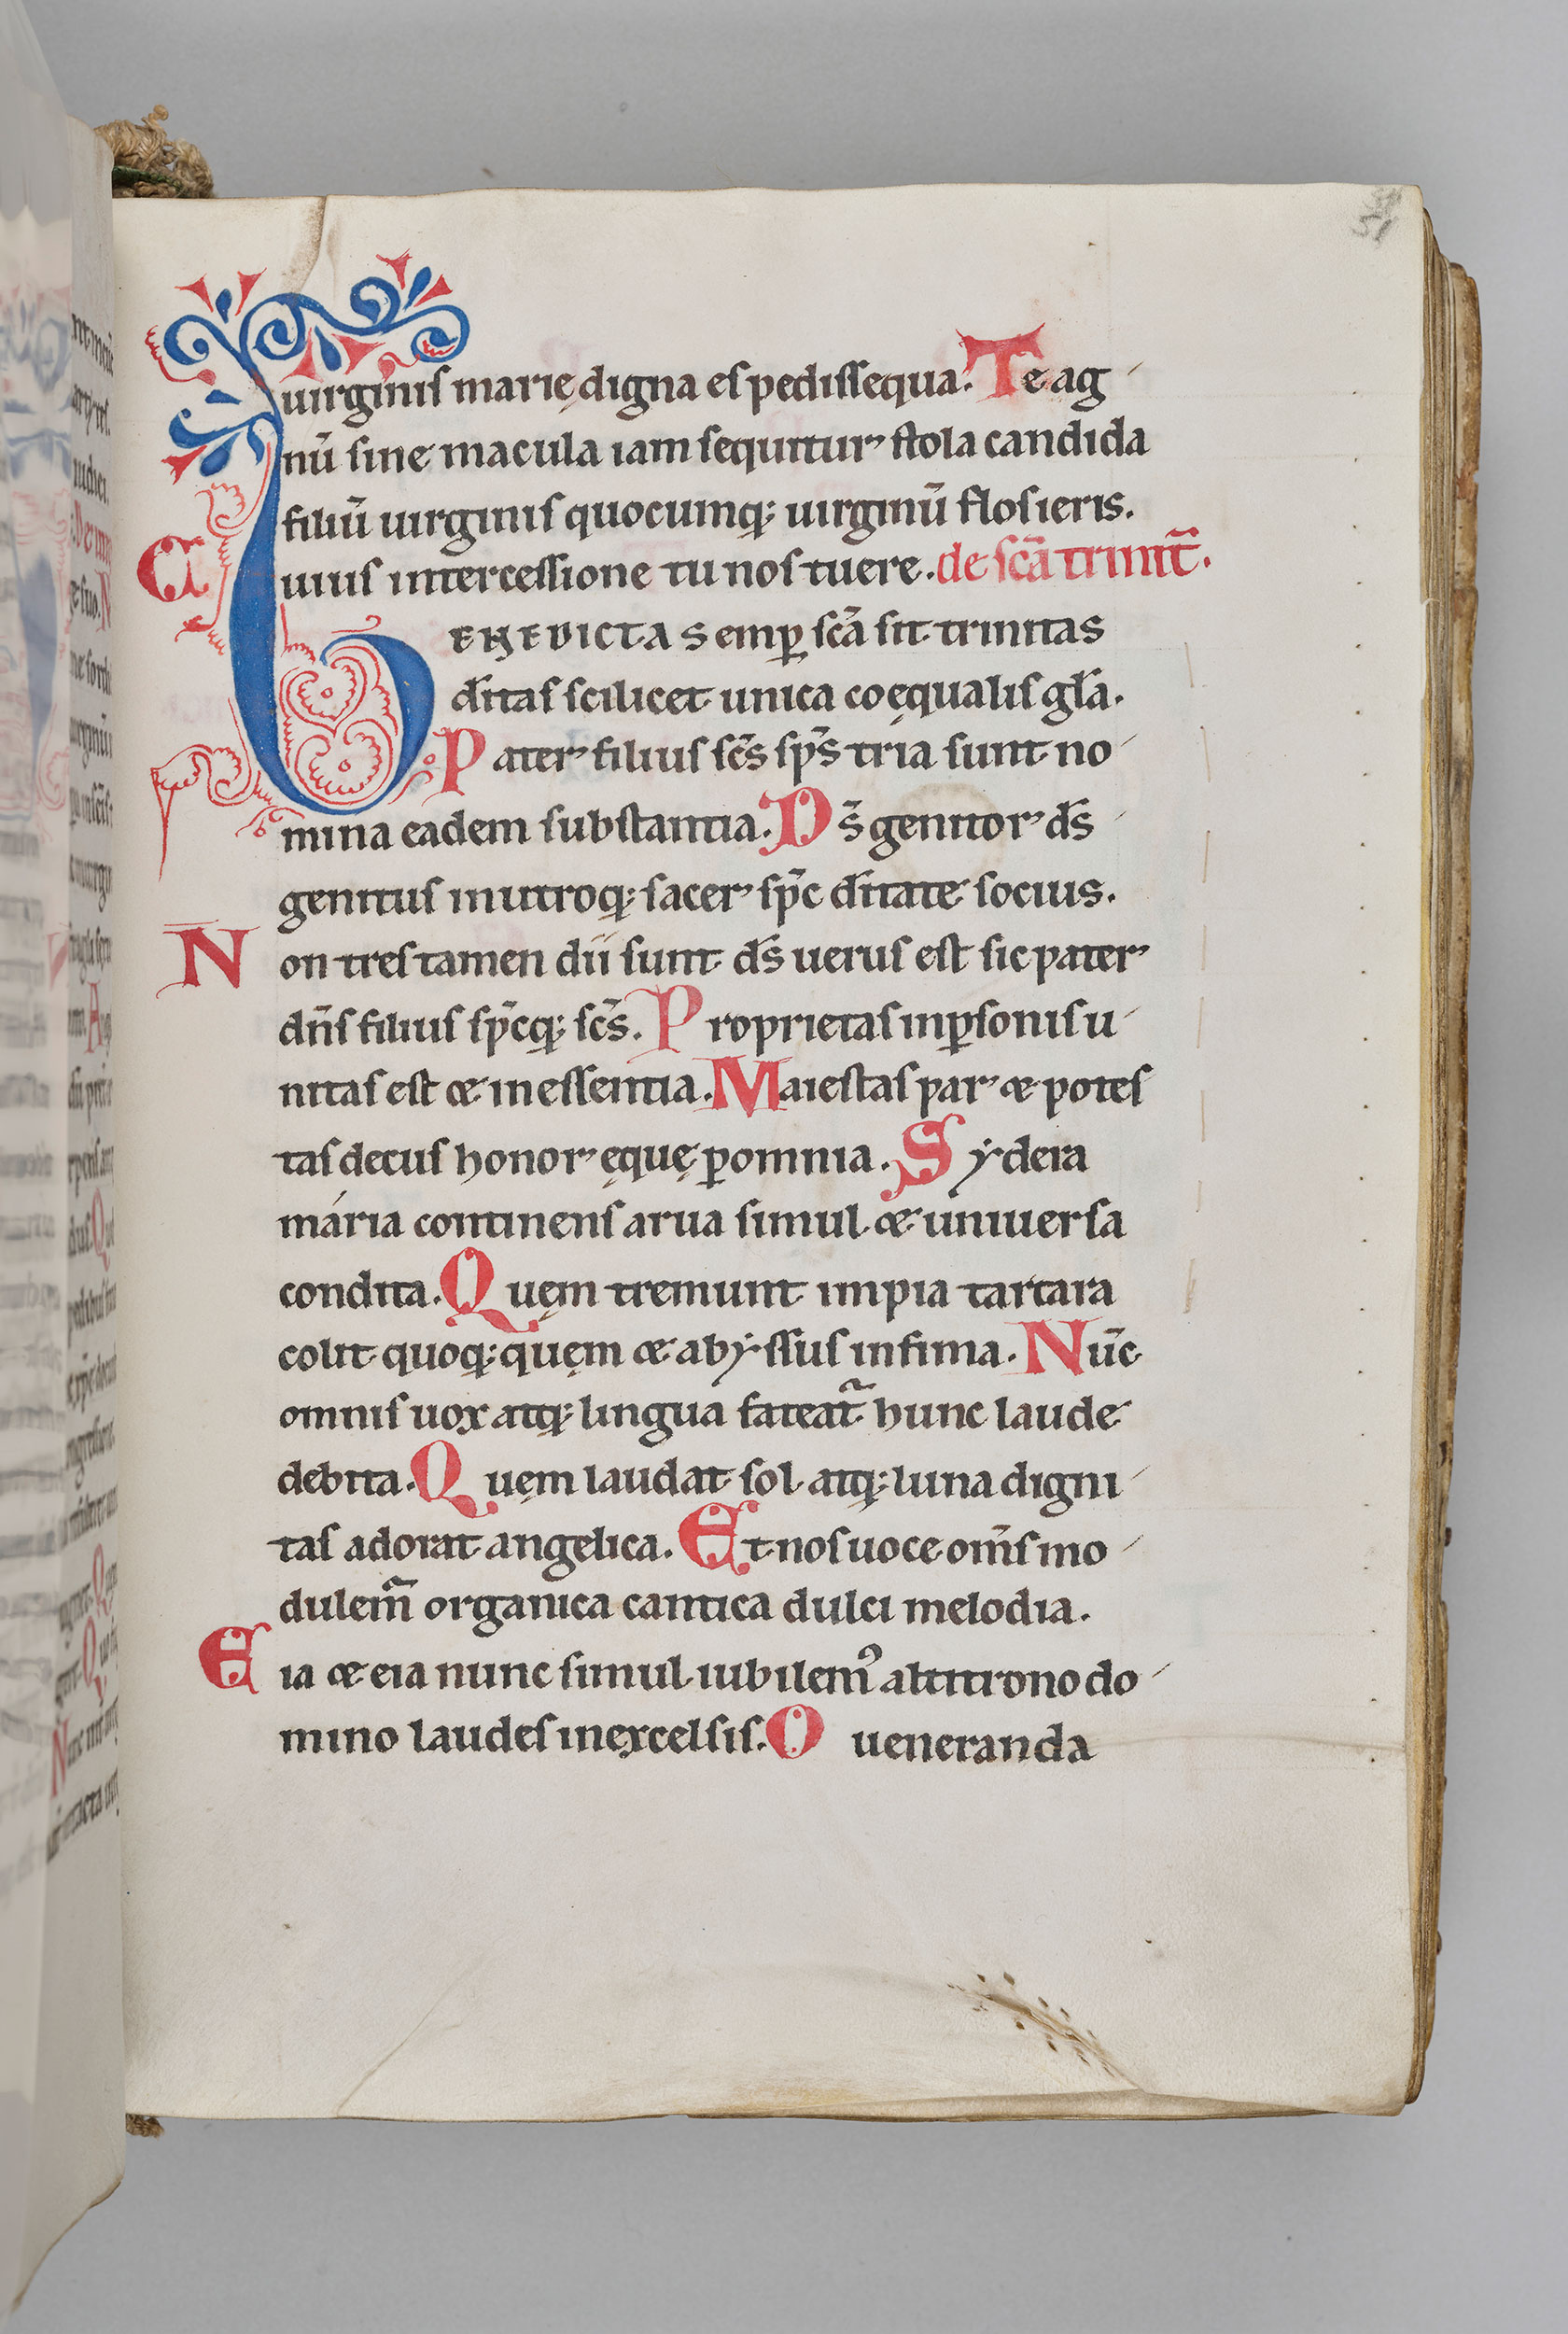 51
uirginis marię digna es pedissequa. Te ag-
nū sine macula iam sequitur stola candida
filiū uirginis quocumq; uirginū flos ieris.
Cuius intercessione tu nos tuere. de scā trinit̄.
BENEDICTA Semp̱ scā sit trinitas
dītas scilicet unica coęqualis gl̄a.
Pater filius sc̄s sp̄s tria sunt no-
mina eadem substantia. Ds̄ genitor ds̄
genitus in utroq; sacer sp̄c dītate socius.
Non tres tamen dii sunt ds̄ uerus est sic pater
dn̄s filius sp̄cq; sc̄s. Proprietas in p̱sonis u-
nitas est & in essentia. Maiestas par & potes
tas decus honor ęquę p̱ omnia. Sẏdera
maria continens arua simul & uniuersa
condita. Quęm tremunt impia tartara
colit quoq; quęm & abẏssus infima. Nūc
omnis uox atq; lingua fateat᷑ hunc laude
debita. Quęm laudat sol atq; luna digni-
tas adorat angelica. Et nos uoce om̄s mo-
dulem᷑ organica cantica dulci melodia.
Eia & eia nunc simul iubilemꝰ altitrono do-
mino laudes in excelsis. O ueneranda